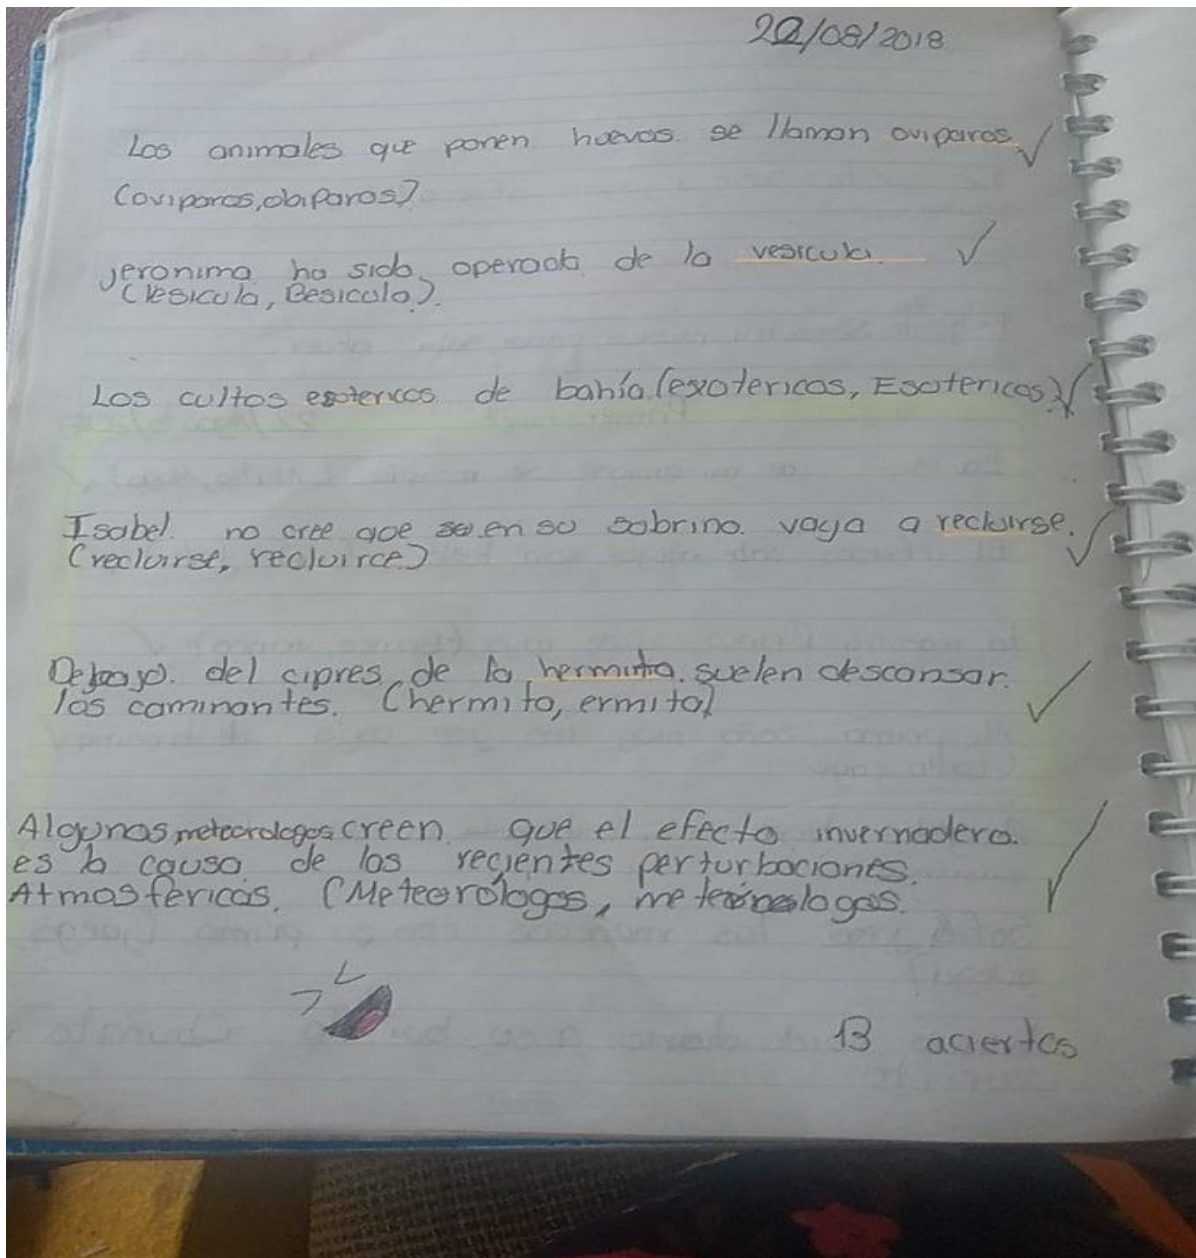 22/08/2018
Los animales que ponen huevos. se llaman oviparos.
(oviparos, obiparos)
jeronima ha sido operada de la vesicula.
(Vesicula, Besicula).
Los cultos esotericos de bahía (exotericos, Esotericos)
Isabel. no cree que en su sobrino. vaya a recluirse.
(recluirse, recluirce)
Debajo. del cipres de la hermita. suelen descansar.
los caminantes. (hermita, ermita)
Algunos meteorologos creen que el efecto invernadero.
es la causa de las recientes perturbaciones.
Atmosféricas. (Meteorólogos,
13 aciertos